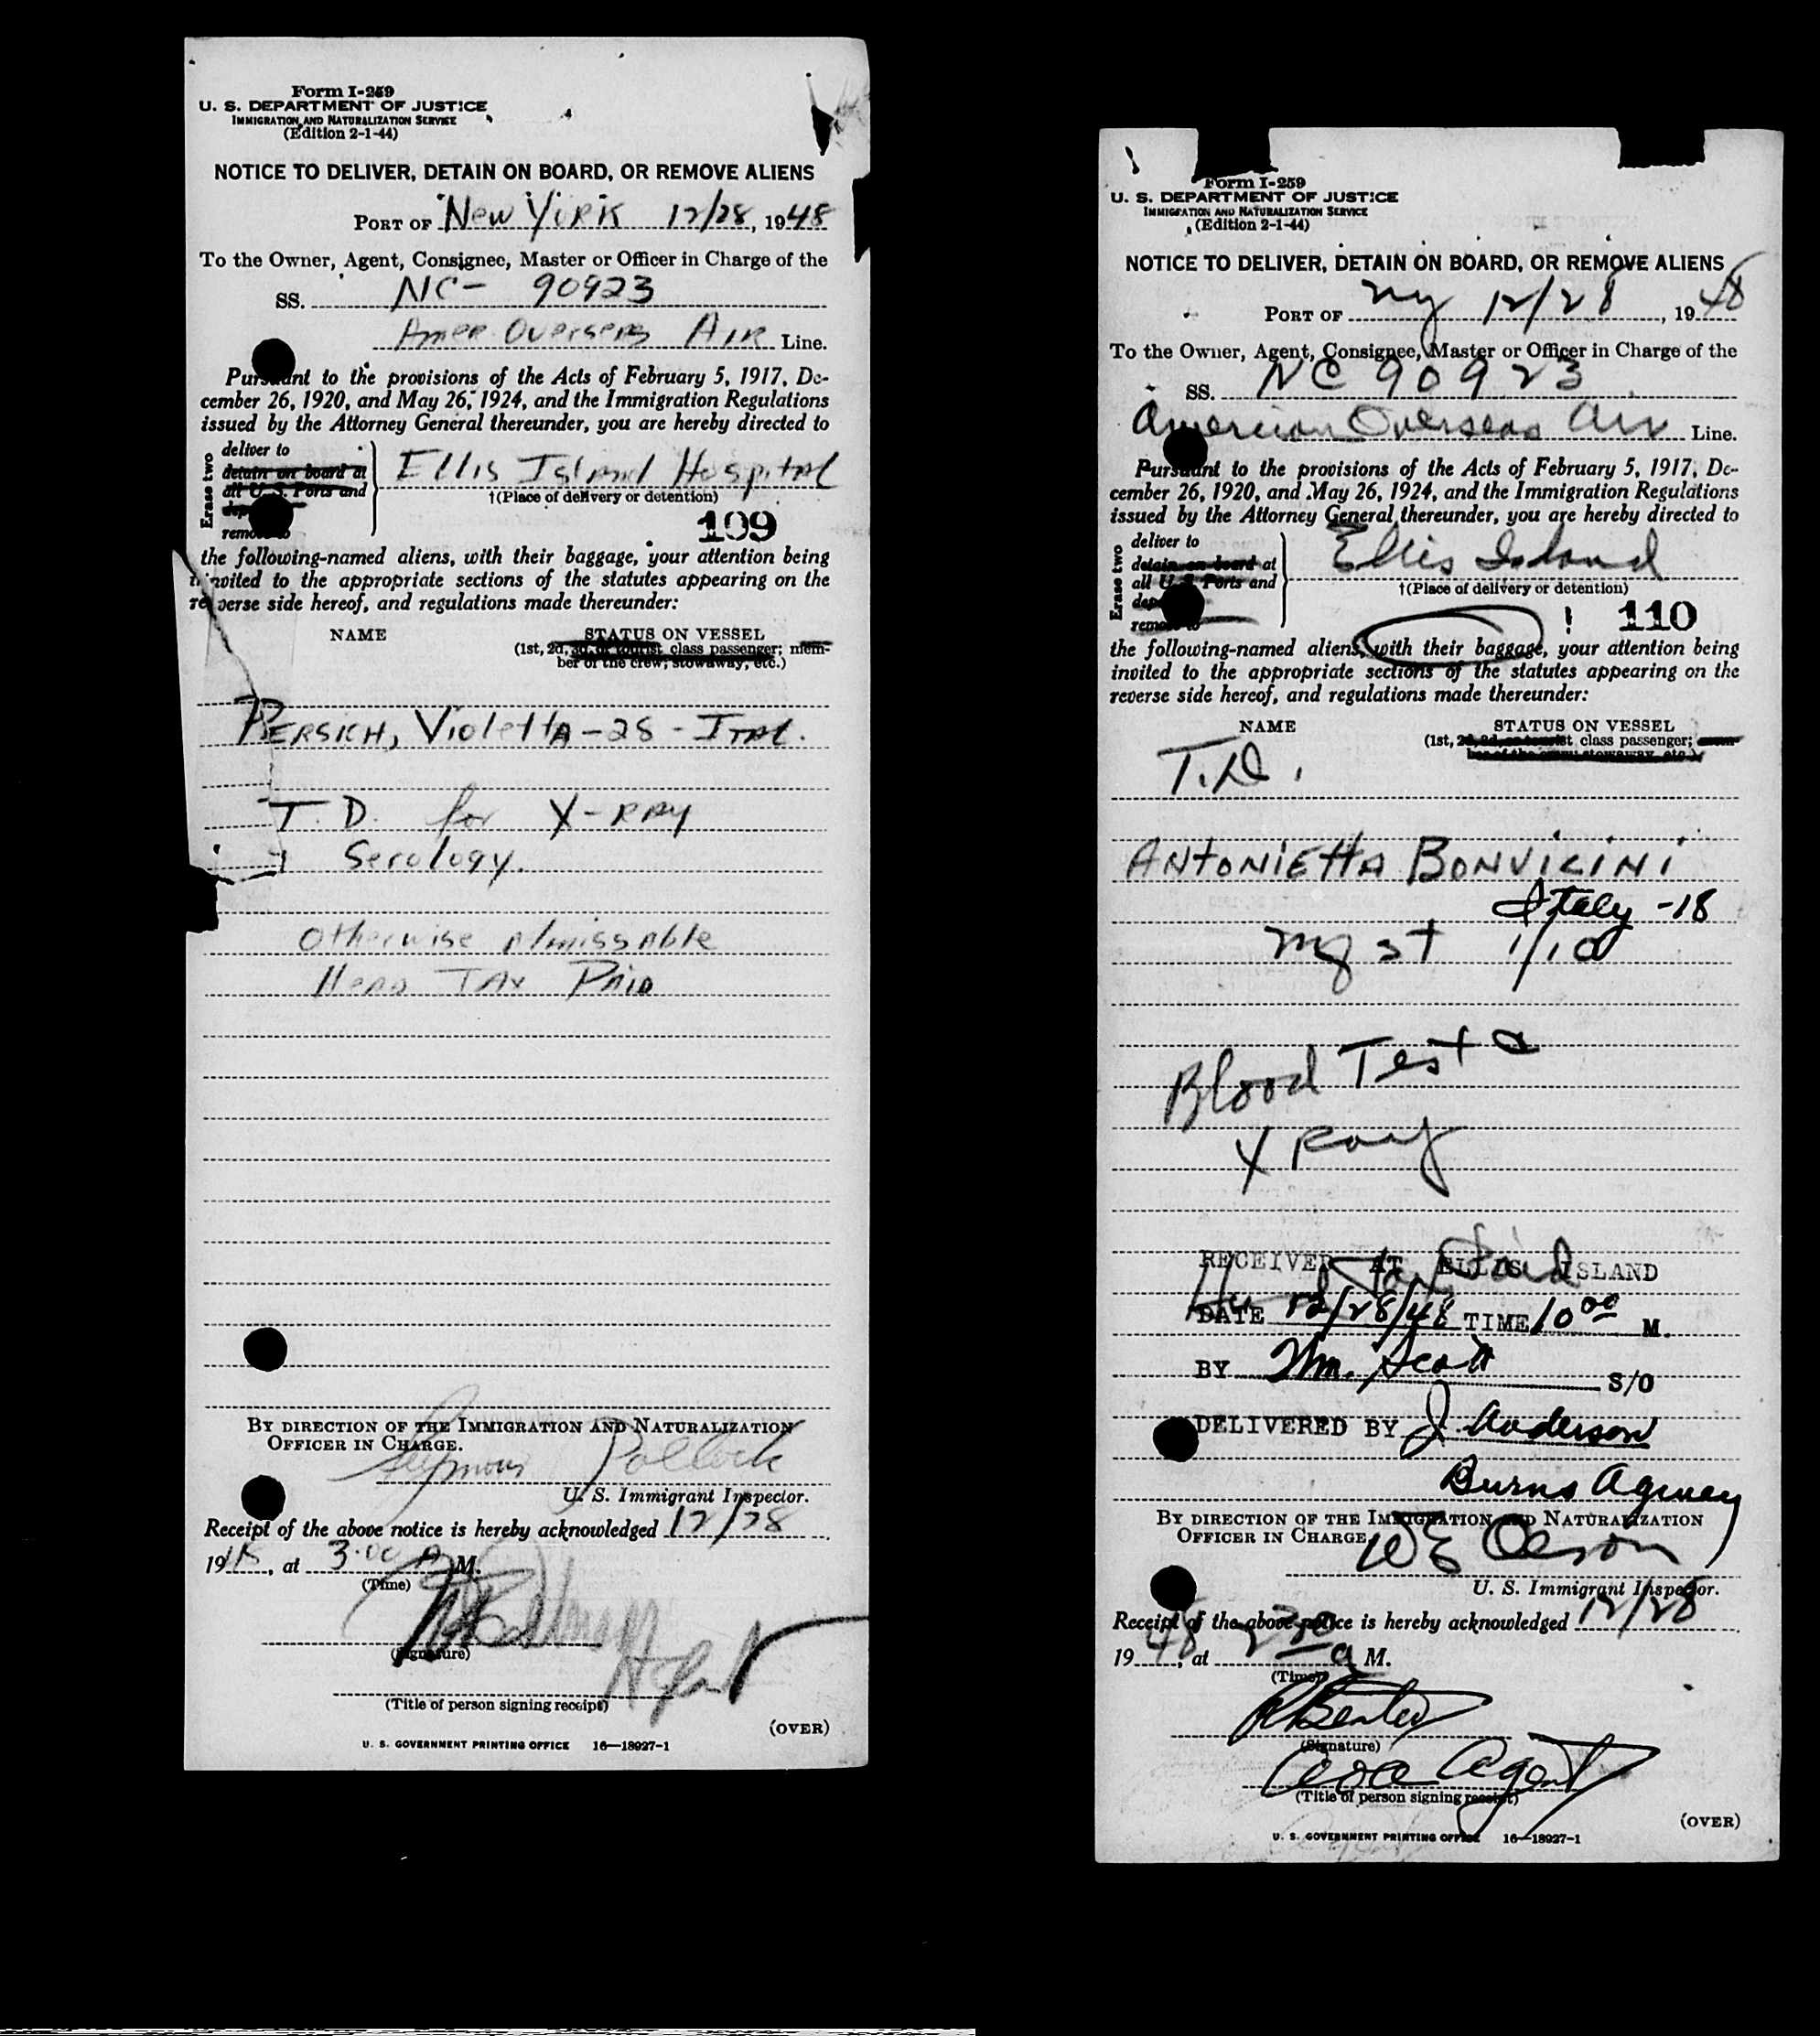 Form I-259
U. S. DEPARTMENT OF JUSTICE
IMMIGRATION AND NATURALIZATION SERVICE
(Edition 2-1-44)
NOTICE TO DELIVER, DETAIN ON BOARD, OR REMOVE ALIENS
PORT OF New York 12/28, 1948
To the Owner, Agent, Consignee, Master or Officer in Charge of the
SS. NC- 90923
Amer Overseas Air Line.
Pursuant to the provisions of the Acts of February 5, 1917, De-
cember 26, 1920, and May 26, 1924, and the Immigration Regulations
issued by the Attorney General thereunder, you are hereby directed to
Erase two
deliver to
detain on board at
all U. S. Ports and
remove to
Ellis Island Hospital
†(Place of delivery or detention)
109
the following-named aliens, with their baggage, your attention being
invited to the appropriate sections of the statutes appearing on the
reverse side hereof, and regulations made thereunder:
NAME STATUS ON VESSEL
(1st, 2d, 3d, or tourist class passenger; mem-
ber of the crew; stowaway, etc.)
PERSICH, VioletTA - 28 - ITAL.
T. D. for X-RAY
Serology.
Otherwise Admissable
Head TAX PAID
BY DIRECTION OF THE IMMIGRATION AND NATURALIZATION
OFFICER IN CHARGE.
Seymour Pollock
U. S. Immigrant Inspector.
Receipt of the above notice is hereby acknowledged 12/28
1948, at 3:00 A M.
(Time)
(Signature)
(Title of person signing receipt)
(OVER)
U. S. GOVERNMENT PRINTING OFFICE 16—18927-1
Form I-259
U. S. DEPARTMENT OF JUSTICE
IMMIGRATION AND NATURALIZATION SERVICE
(Edition 2-1-44)
NOTICE TO DELIVER, DETAIN ON BOARD, OR REMOVE ALIENS
PORT OF ny 12/28, 1948
To the Owner, Agent, Consignee, Master or Officer in Charge of the
SS. NC 90923
American Overseas Air Line.
Pursuant to the provisions of the Acts of February 5, 1917, De-
cember 26, 1920, and May 26, 1924, and the Immigration Regulations
issued by the Attorney General thereunder, you are hereby directed to
Erase two
deliver to
detain on board at
all U. S. Ports and
remove to
Ellis Island
†(Place of delivery or detention)
! 110
the following-named aliens, with their baggage, your attention being
invited to the appropriate sections of the statutes appearing on the
reverse side hereof, and regulations made thereunder:
NAME STATUS ON VESSEL
(1st, 2d, 3d, or tourist class passenger; mem-
ber of the crew; stowaway, etc.)
T.D.
ANTONIETTA BONVICINI
Italy - 18
1/10
Blood Test &
X Ray
RECEIVED AT ELLIS ISLAND
Head Tax Paid
DATE 12/28/48 TIME 10 00 M.
BY Wm. Scott S/O
DELIVERED BY J. Anderson
Burns Agency
BY DIRECTION OF THE IMMIGRATION AND NATURALIZATION
OFFICER IN CHARGE.
WE Olson
U. S. Immigrant Inspector.
Receipt of the above notice is hereby acknowledged 12/28
1948, at 2 30 a M.
(Time)
(Signature)
Agent
(Title of person signing receipt)
(OVER)
U. S. GOVERNMENT PRINTING OFFICE 16—18927-1